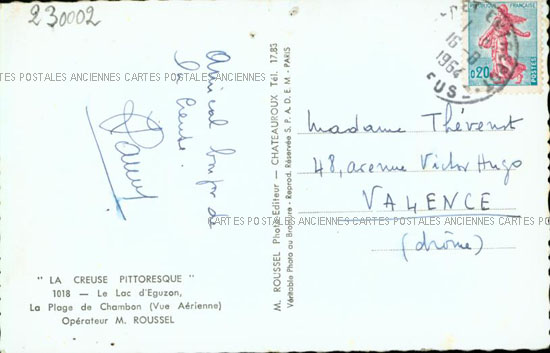 230002
REPUBLIQUE FRANÇAISE
0,20
POSTES
16-8
1964
CARTES POSTALES ANCIENNES CARTES POSTALES ANCIENNES CARTES POSTALES ANCIENNES
Amical bonjour de
la Creuse.
M. ROUSSEL Photo-Editeur — CHATEAUROUX Tél. 17.83
Véritable Photo au Bromure - Reprod. Réservée S. P. A. D. E. M - PARIS
Madame Thévenot
48, avenue Victor Hugo
VALENCE
CARTES POSTALES ANCIENNES CARTES POSTALES ANCIENNES CARTES POSTALES ANCIENNES
(drôme)
" LA CREUSE PITTORESQUE "
1018 — Le Lac d'Eguzon,
La Plage de Chambon (Vue Aérienne)
Opérateur M. ROUSSEL